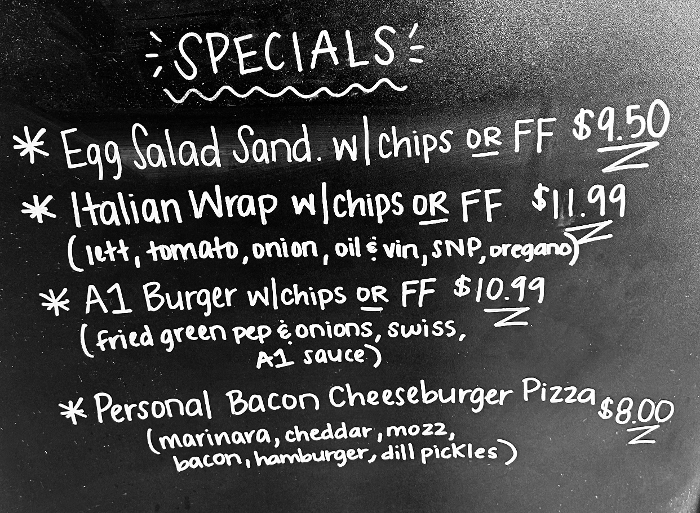 SPECIALS
* Egg Salad Sand. w/chips OR FF $9.50
* Italian Wrap w/chips OR FF $11.99
(lett, tomato, onion, oil & vin, SNP, oregano)
* A1 Burger w/chips OR FF $10.99
(fried green pep & onions, swiss,
A1 sauce)
* Personal Bacon Cheeseburger Pizza $8.00
(marinara, cheddar, mozz,
bacon, hamburger, dill pickles)